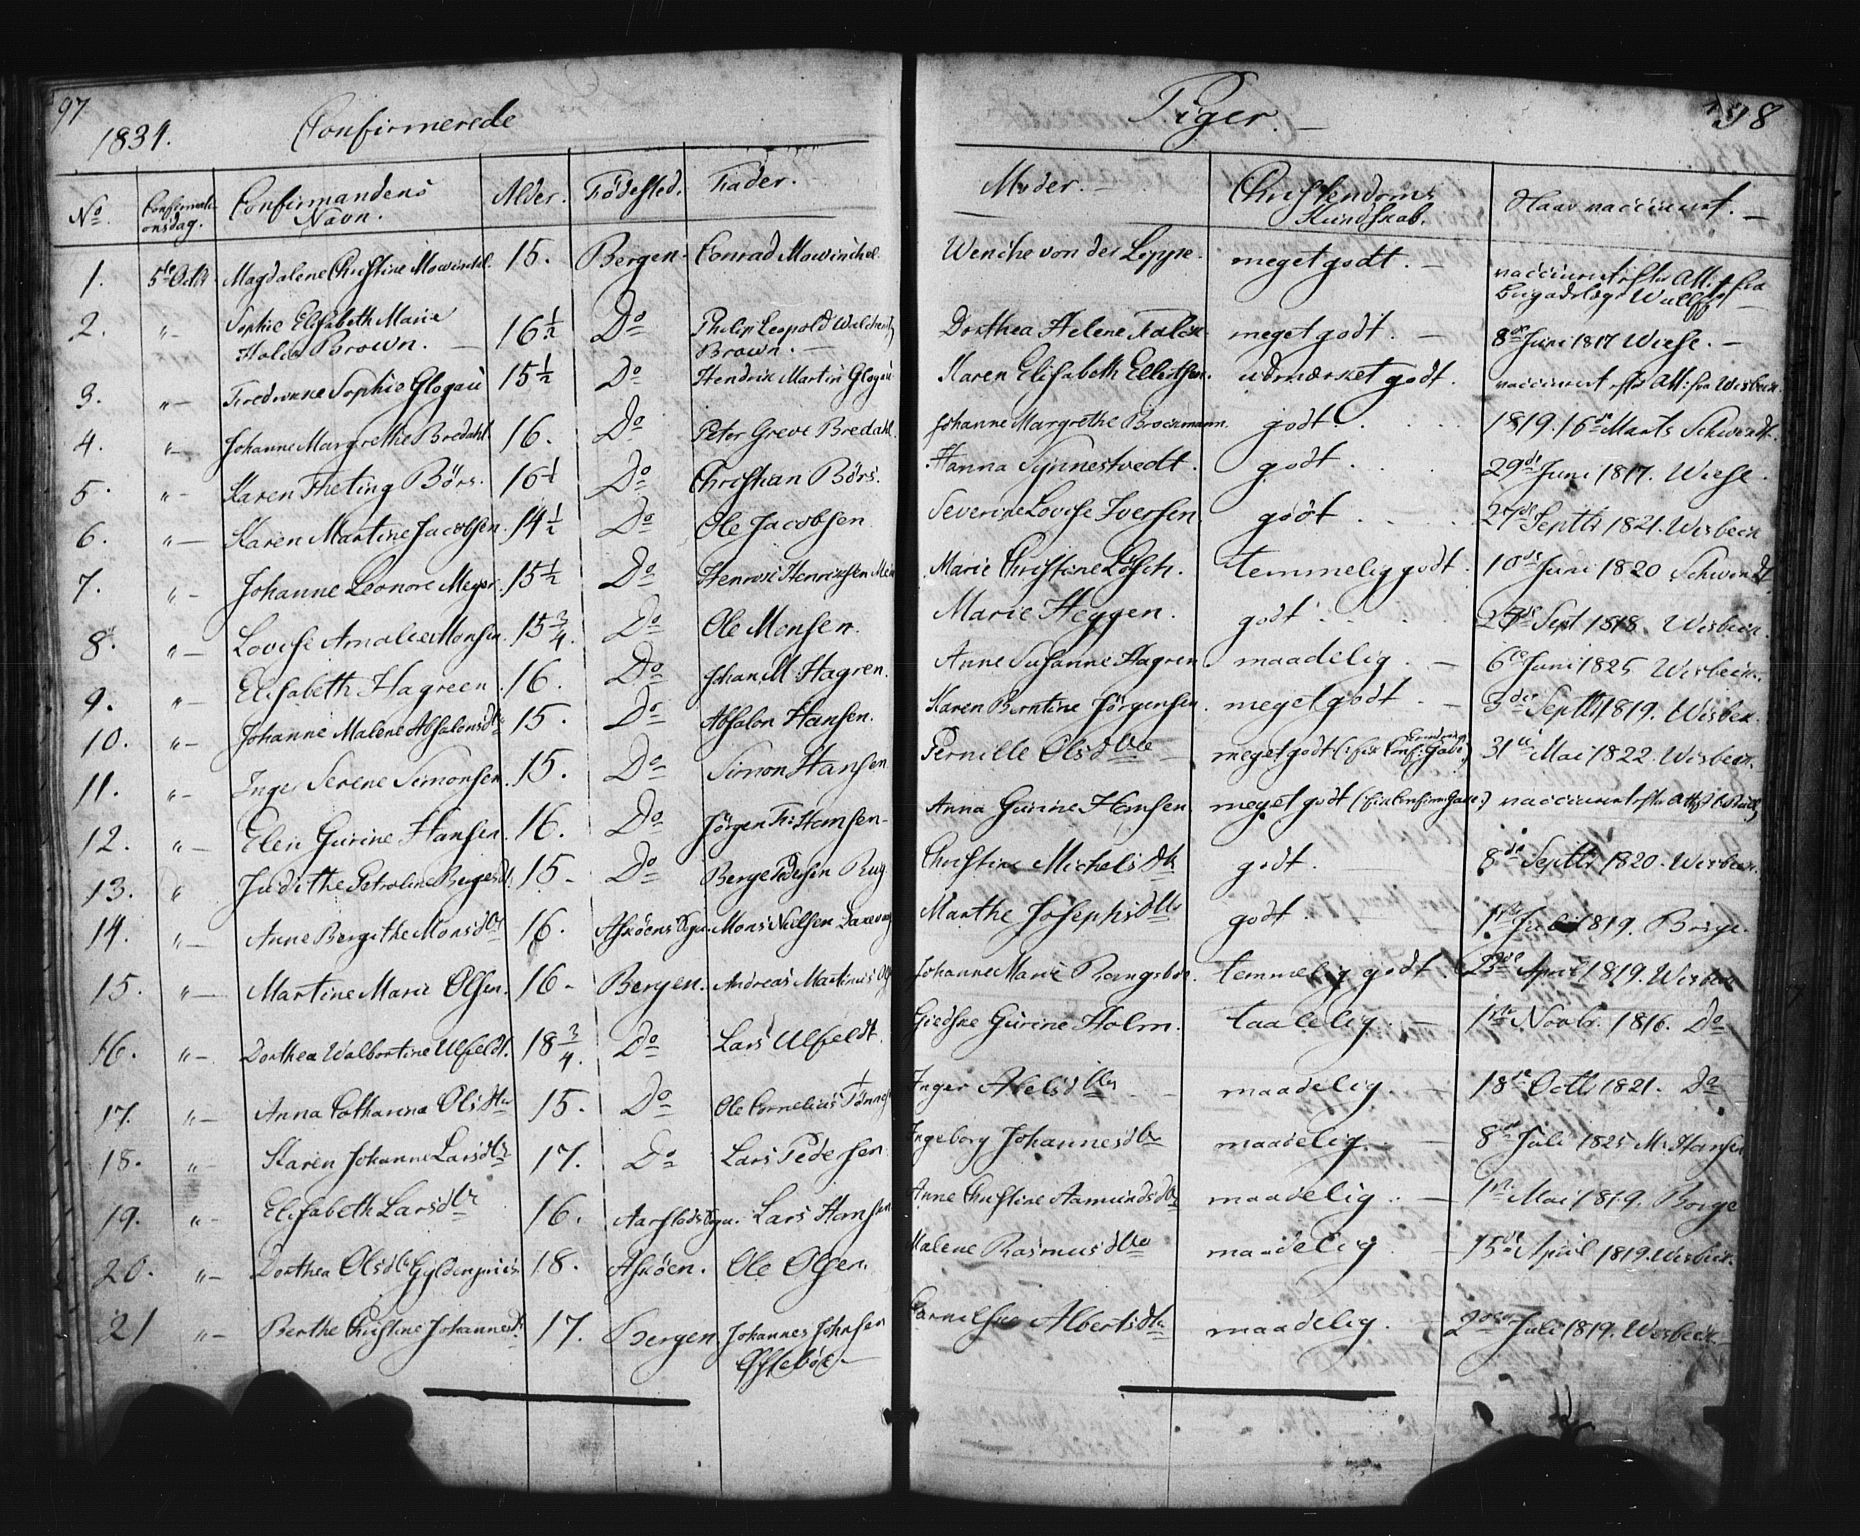 97
1834. Confirmerede Piger. 98
No. Confirmationsdag. Confirmandens Navn. Alder. Fødested. Fader. Moder. Christendoms Kundskab. Naar vaccineret.
1. 5te Octb Magdalene Christine Mowinckel. 15. Bergen. Conrad Mowinckel. Wenche von der Lippe. meget godt. vaccineret efter Att: fra
Brigadelæge Wulff
2. " Sophie Elisabeth Marie 16½ Do Philip Leopold Brown. Dorthea Helene Falck meget godt. 8de Juni 1817 Wiese.
Brown.
3. " Fredrikke Sophie Glogau 15½ Do Hendrik Martin Glogau Karen Elisabeth Ellertsen. udmærket godt. vaccineret efter Att: fra Wisbech
4. " Johanne Margrethe Bredahl. 16. Do Peter Greve Bredahl. Johanne Margrethe Brockmann. godt. 1819. 16de Marts Schwindt.
5. " Karen Theting Börs. 16½ Do Christian Börs. Hanna Synnestvedt. godt. 29de Juni 1817. Wiese.
6. " Karen Martine Jacobsen. 14½ Do Ole Jacobsen Severine Lovise Iversen. godt. 27de Septb 1821. Wisbech
7. " Johanne Leonore Meyer. 15½ Do Henrik Henriksen Marie Christine Lösch. temmelig godt. 10de Juni 1820 Schwindt
8. " Lovise Amalie Monsen. 15¾. Do Ole Monsen. Marie Heggen. godt. Sept 1818. Wisbech.
9. " Elisabeth Hagreen 16. Do Johan M: Hagren. Anne Susanne Hagren. maadelig. 6te Juni 1825 Wisbech.
10. " Johanne Malene Absalonsdtr 15. Do Absalon Hansen. Karen Berntine Jörgensen. meget godt. 3die Septb 1819. Wisbech.
11. " Inger Serene Simonsen. 15. Do Simon Hansen Pernille Olsdtr meget godt 31te Mai 1822. Wisbech.
12. " Elen Gurine Hansen. 16. Do Jörgen Fr: Hansen. Anna Gurine Hansen. meget godt vaccineret efter Att:
13. " Judithe Petroline Bergesdt. 15. Do Berge Pedersen Christine Michelsdtr godt. 8de Septb 1820. Wisbech.
14. " Anne Bergithe Monsdtr 16. Askøens Sogn. Mons Nielsen Marthe Josephsdtr godt. 1ste 1819. Börge.
15. " Martine Marie Olsen. 16. Bergen. Andreas Martinus Johanne Marie temmelig godt April 1819. Wisbech
16. " Dorthea Walbortine Ulfeldt. 18¾. Do Lars Ulfeldt. Giedske Gurine Holm. taalelig. 1ste Novbr. 1816. Do
17. " Anna Cathanna Olsdtr 15. Do Ole Cornelius Inger Abelsdtr maadelig. 18de Octb 1821. Do
18. " Karen Johanne Larsdtr 17. Do Lars Pedersen Ingeborg Johannesdtr maadelig. 8de Juli 1825 M. Hansen
19. " Elisabeth Larsdtr 16. Aarstads Sogn. Lars Hansen Anne Christine Aamundsdtr maadelig. 1ste Mai 1819. Borge
20. " Dorthea Olsdtr 18. Askøen. Ole Olsen. Malene Rasmusdtr maadelig. 15de April 1819. Wisbech.
21 " Berthe Christine Johannesdt. 17. Bergen. Johannes Johnsen Albertsdtr maadelig. Juli 1819. Wisbech.